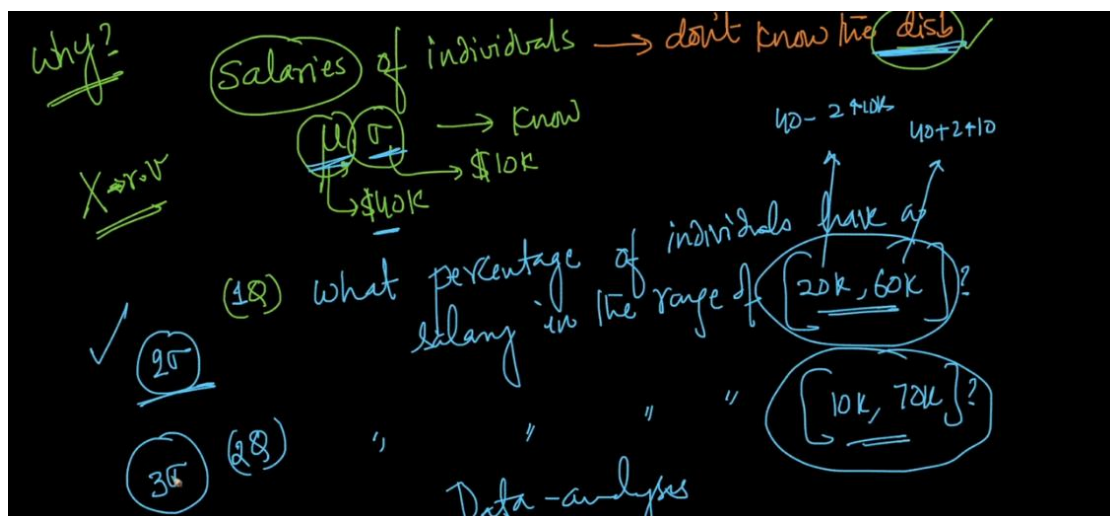 Why?
Salaries of individuals → don't know the disb ✓
μ σ → know
40-2*10K
40+2*10
X→r.v
$10K
$40K
(1Q) What percentage of individuals have a
salary in the range of [20K, 60K]?
✓ 2σ
3σ (2Q) " " " " [10K, 70K]?
Data-analyses